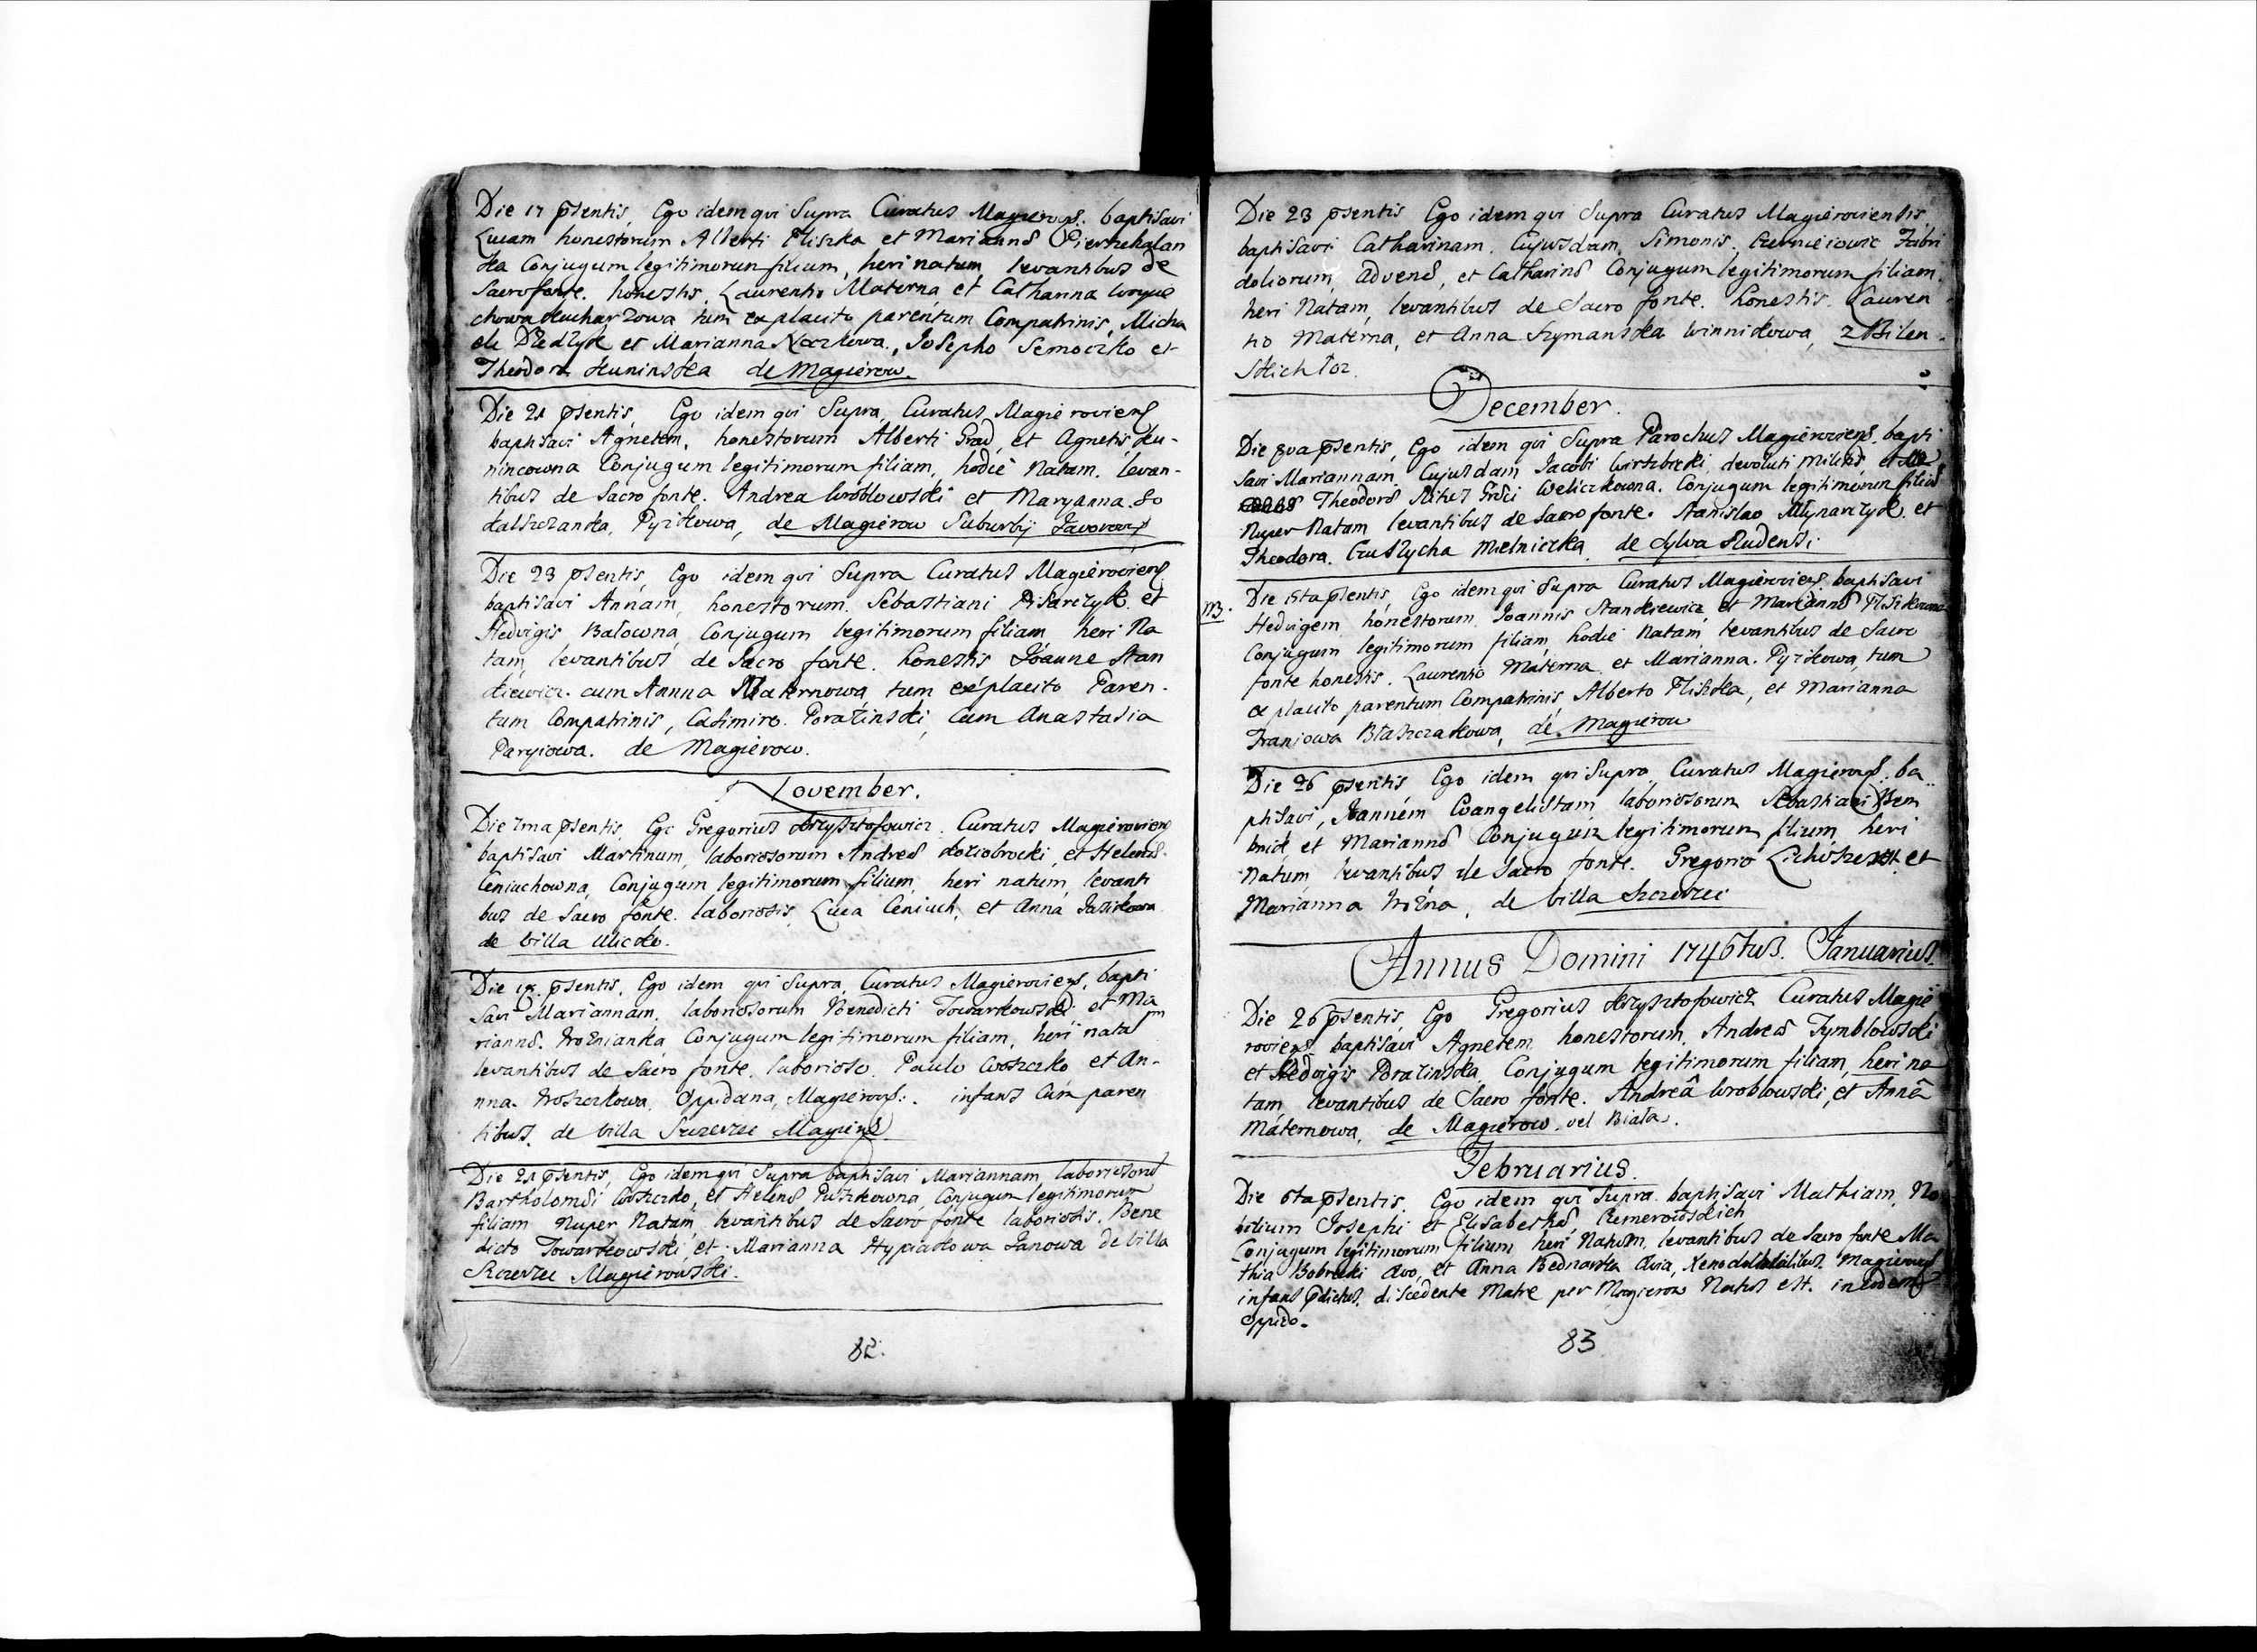 Die 17 psentis, Ego idem qui Supra Curatus Magierovs. baptisavi
Lucam honestorum Alberti Fliszka et Mariannæ
ka Conjugum legitimorum filium, heri natum, levantibus de
Sacro fonte. honestis. Laurentio Materna et Catharina
chowa Kucharzowa tum ex placito parentum Compatrinis, Micha
ele et Marianna, Josepho Semoczko et
Theodora Huninska de Magierow.
Die 21 psentis, Ego idem qui Supra, Curatus Magieroviens
baptisavi Agnetem, honestorum Alberti Grad, et Agnetis Hu-
nincowna Conjugum legitimorum filiam, hodie Natam. levan-
tibus de Sacro fonte. Andrea Wroblowski et Maryanna So
kalszczanka, Pyzikowa, de Magierow Suburbij
Die 23 psentis, Ego idem qui Supra Curatus Magieroviens
baptisavi Annam, honestorum. Sebastiani Pisarczyk et
Hedvigis Bałowna, Conjugum legitimorum filiam, heri Na
tam, levantibus de Sacro fonte. honestis Joanne Stan
kiewicz. cum Anna Maternowa, tum ex placito Paren.
tum Compatrinis, Casimiro. Poraźinski, cum Anastasia
Paryiowa. de Magierow.
November.
Die 7ma psentis, Ego Gregorius Krzysztofowicz. Curatus Magieroviens
baptisavi Martinum, laboriosorum Andreæ Koziobrocki, et Helenæ.
Ceniuchowna, Conjugum legitimorum filium, heri natum, levanti
bus de Sacro fonte. laboriosis, Luca Ceniuch, et Anna
de Villa Ulicko.
Die psentis, Ego idem qui Supra, Curatus Magieroviens, bapti
savi Mariannam. laboriosorum Benedicti Towarkowski, et Ma
riannæ. Woźnianka, Conjugum legitimorum filiam, heri natam
levantibus de Sacro fonte. laborioso. Paulo Woszczko et An-
nna. Woszczkowa, Oppidana, Magierovs:. infans Cum paren
tibus, de Villa
Die 21 psentis, Ego idem qui Supra baptisavi Mariannam, laboriosorum
Bartholomæi Woszczko, et Helenæ Puszkowna, Conjugum legitimorum
filiam Nuper Natam, levantibus de Sacro fonte laboriosis. Bene
dicto Towarkowski, et. Marianna Hypiakowa Janowa de Villa
Magierowski.
82.
Die 23 psentis Ego idem qui Supra Curatus Magieroviensis
baptisavi Catharinam. Cujusdam, Simonis. Fabri
doliorum, advenæ, et Catharinæ Conjugum legitimorum filiam.
heri Natam, levantibus de Sacro fonte. honestis. Lauren
tio Materna, et Anna Szymanska Winnikowa, z Bilen.
December.
Die 8va psentis, Ego idem qui Supra Parochus Magieroviens. bapti
savi Mariannam, Cujusdam Jacobi Wirzbicki, devoluti militis, et
Theodoræ Ritus Græci Weliczkowna. Conjugum legitimorum filiam
Nuper Natam levantibus de Sacro fonte. Stanislao Młynarczyk. et
Theodora. Mielniczka, de Sylva Rudensi
NB.
Die psentis, Ego idem qui Supra Curatus Magieroviens. baptisavi
Hedvigem, honestorum. Joannis Stankiewicz, et Mariannæ Fliszkowna
Conjugum legitimorum filiam, hodie Natam, levantibus de Sacro
fonte honestis. Laurentio Materna, et Marianna. Pyzikowa, tum
ex placito parentum Compatrinis, Alberto Fliszka, et Marianna
Franiowa Błaszczakowa, de Magierow
Die 26 psentis Ego idem qui Supra Curatus Magierovs. ba
ptisavi, Joannem Evangelistam, laboriosorum Sebastiani
et Mariannæ Conjugum legitimorum filium, heri
Natum, levantibus de Sacro fonte. Gregorio et
Marianna Woźna, de Villa
Annus Domini 1746tus. Januarius.
Die 26 psentis, Ego Gregorius Krzysztofowicz Curatus Magie
roviens baptisavi Agnetem honestorum, Andreæ Tymblowski
et Hedvigis Poraźinska, Conjugum legitimorum filiam, heri na
tam, levantibus de Sacro fonte. Andreâ Wroblowski, et Annâ
Maternowa, de Magierow vel Biała.
Februarius.
Die 6ta psentis, Ego idem qui Supra. baptisavi Mathiam, No
bilium Josephi et Elisabethæ,
Conjugum legitimorum filium heri Natum, levantibus de Sacro fonte Ma
thia Bobrecki avo, et Anna Bednarska avia, Magierovs
infans pdictus, discedente Matre per Magierow Natus est. in eodem
Oppido.
83